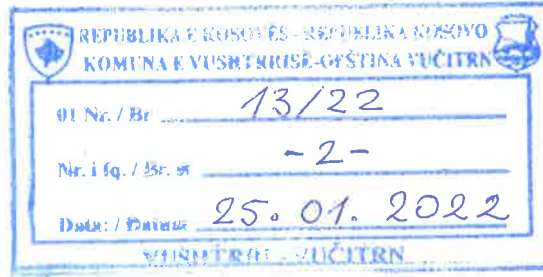 REPUBLIKA E KOSOVËS - REPUBLIKA KOSOVO
KOMUNA E VUSHTRRISË-OPŠTINA VUČITRN
01 Nr. / Br 13/22
Nr. i fq. / Br. st -2-
Data: / Datum: 25. 01. 2022
VUSHTRRI - VUČITRN